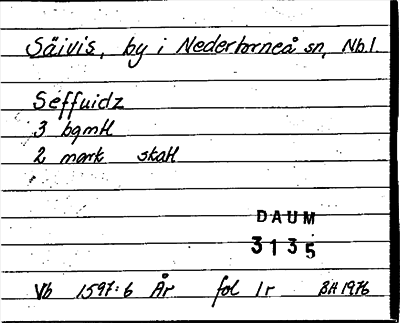 Säivis, by i Nedertorneå sn, Nb.l.
Seffuidz
3 bgmtl
2 mark skatt
DAUM
3135
Vb 1597:6 År fol 1r BH 1976